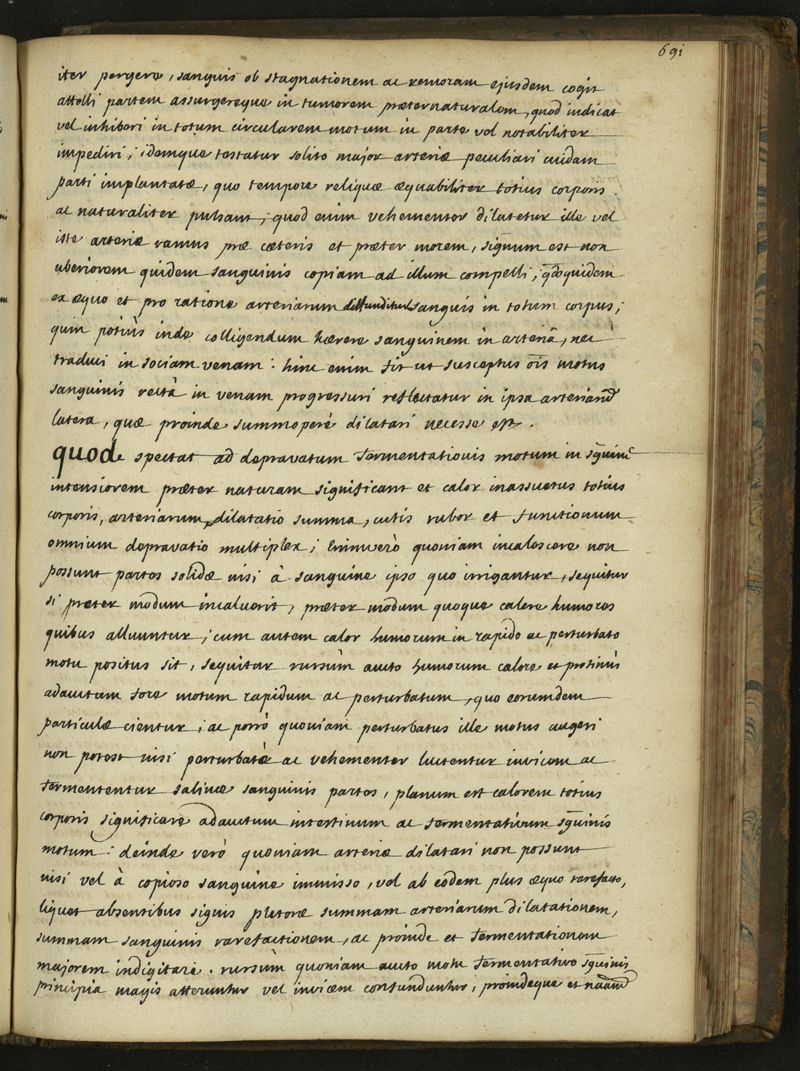 691
iter pergere, sanguis ob stagnationem ac remoram ejusdem cogit
attolli partem assurgereque in tumorem præternaturalem, quod indicat
vel inhiberi in totum circularem motum in parte vel notabiliter
impediri; idemque testatur solito major arteriæ peculiari cuidam
parti implantatæ, quo tempore reliquæ æquabiliter totius corporis
ac naturaliter pulsant; quod enim vehementer dilatetur ille vel
iste arteriæ ramus præ cæteris et præter morem, signum est non
uberiorem quidem sanguinis copiam ad illum compelli, quoquidem
ex æquo et pro ratione arteriarum diffunditur sanguis in totum corpus;
quin potius inde colligendum hærere sanguinem in arteriâ, nec
traduci in sociam venam: hinc enim fit ut susceptus ois motus
sanguinis rectà in venam progressuri reflectatur in ipsa arteriarū
latera, quæ proinde summoperè dilatari necesse est.
quod spectat ad depravatum fermentationis motum in sguine
intensiorem præter naturam significant et calor inassuetus totius
corporis, arteriarum dilatatio summa, cutis rubor et functionum
omnium depravatio multiplex; Enimverò quoniam incalescere non
possunt partes solidæ nisi à sanguine ipso quo irrigantur, sequitur
si præter modum incaluerit, præter modum quoque calere humores
quibus alluuntur; cum autem calor humorum in rapido ac perturbato
motu positus sit, sequitur rursùm aucto humorum calore et protinùs
adauctum fore motum rapidum ac perturbatum, quo eorumdem
particulæ cientur; ac porrò quoniam perturbatus ille motus augeri
non potest nisi perturbatè ac vehementer luctentur invicem ac
fermententur salinæ sanguinis partes, planum est calorem totius
corporis significare adauctum intestinum ac fermentativum sguinis
motum: deinde verò quoniam arteriæ dilatari non possunt
nisi vel à copioso sanguine immisso, vel ab eodem plus æquo rarefacto,
liquet absentibus signis pletoræ summam arteriarum dilatationem,
summam sanguinis rarefactionem, ac proinde et fermentationem
majorem indigitare. rursùm quoniam aucto motu fermentativo sguinis
principia magis atteruntur vel invicem confunduntur, proindeque et